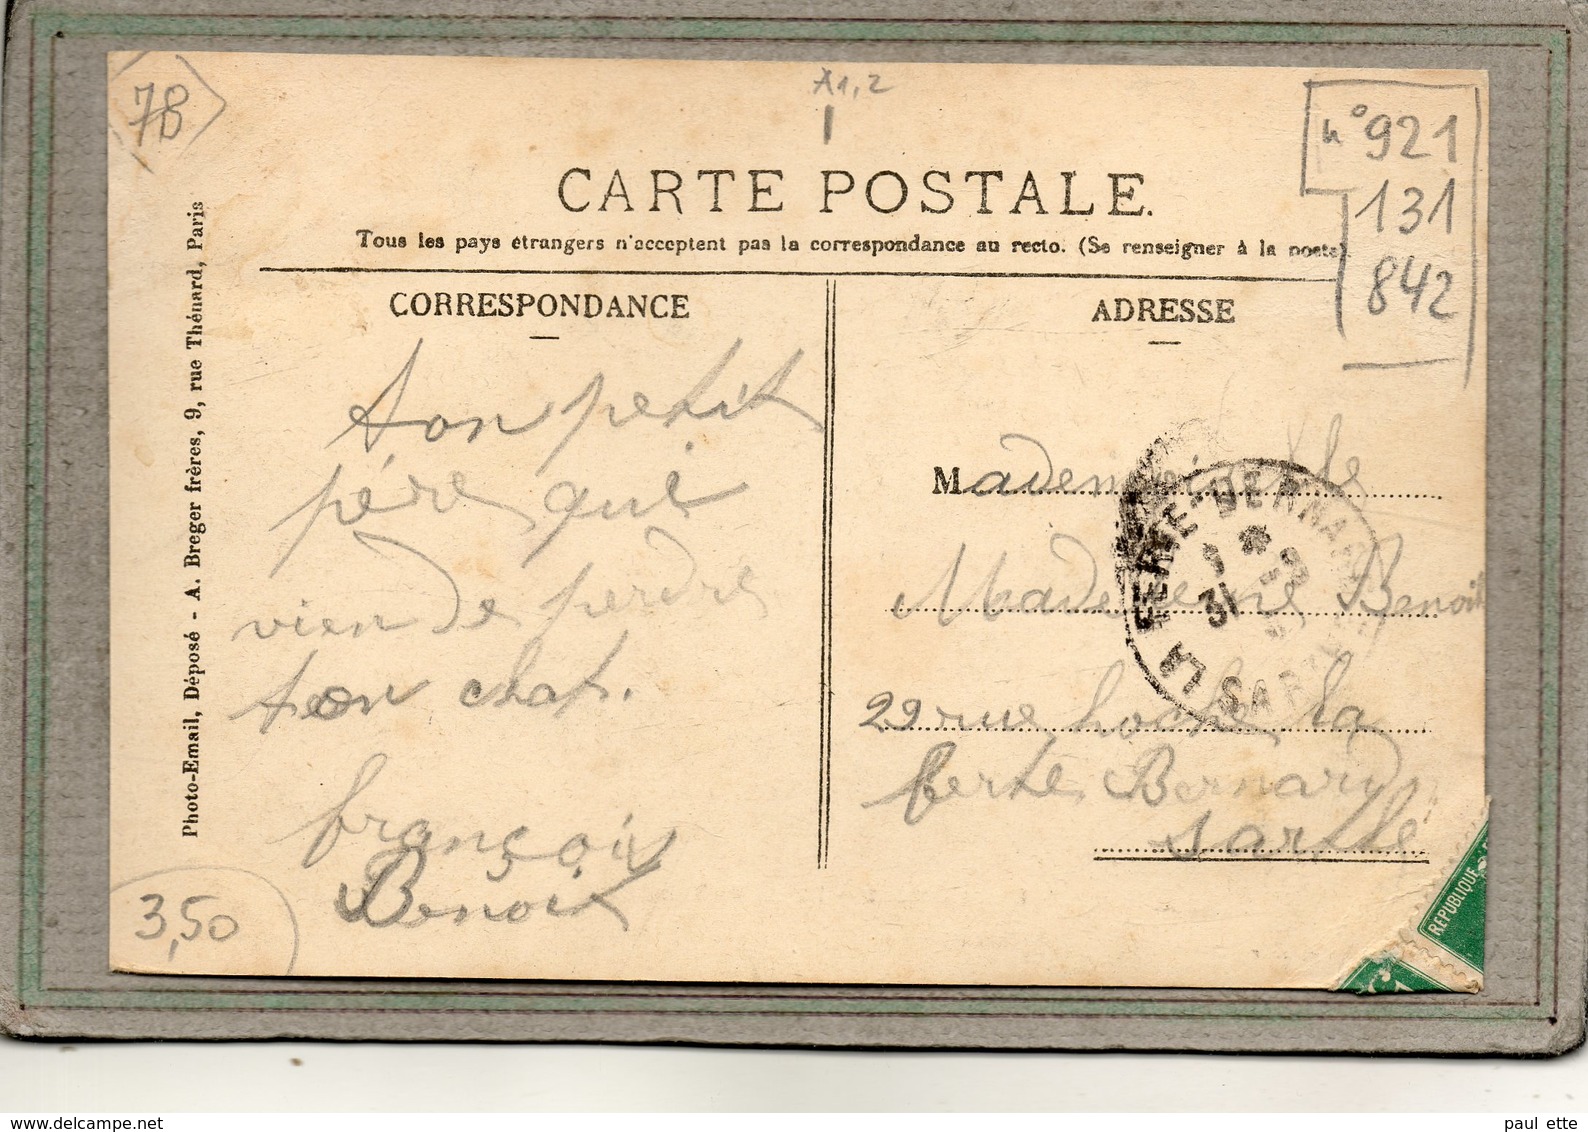 78
A1,2
n° 921
131
842
CARTE POSTALE.
Tous les pays étrangers n'acceptent pas la correspondance au recto. (Se renseigner à la poste).
CORRESPONDANCE
ton petit
père qui
vien de perdre
ton chat.
françois
Benoit
ADRESSE
Mademoiselle
Madeleine Benoit
29 rue hoche la
ferté Bernard
Sarthe
LA FERTÉ-BERNARD
31
SARTHE
Photo-Email, Déposé - A. Breger frères, 9, rue Thénard, Paris
3,50
REPUBLIQUE
www.delcampe.net
paul ette